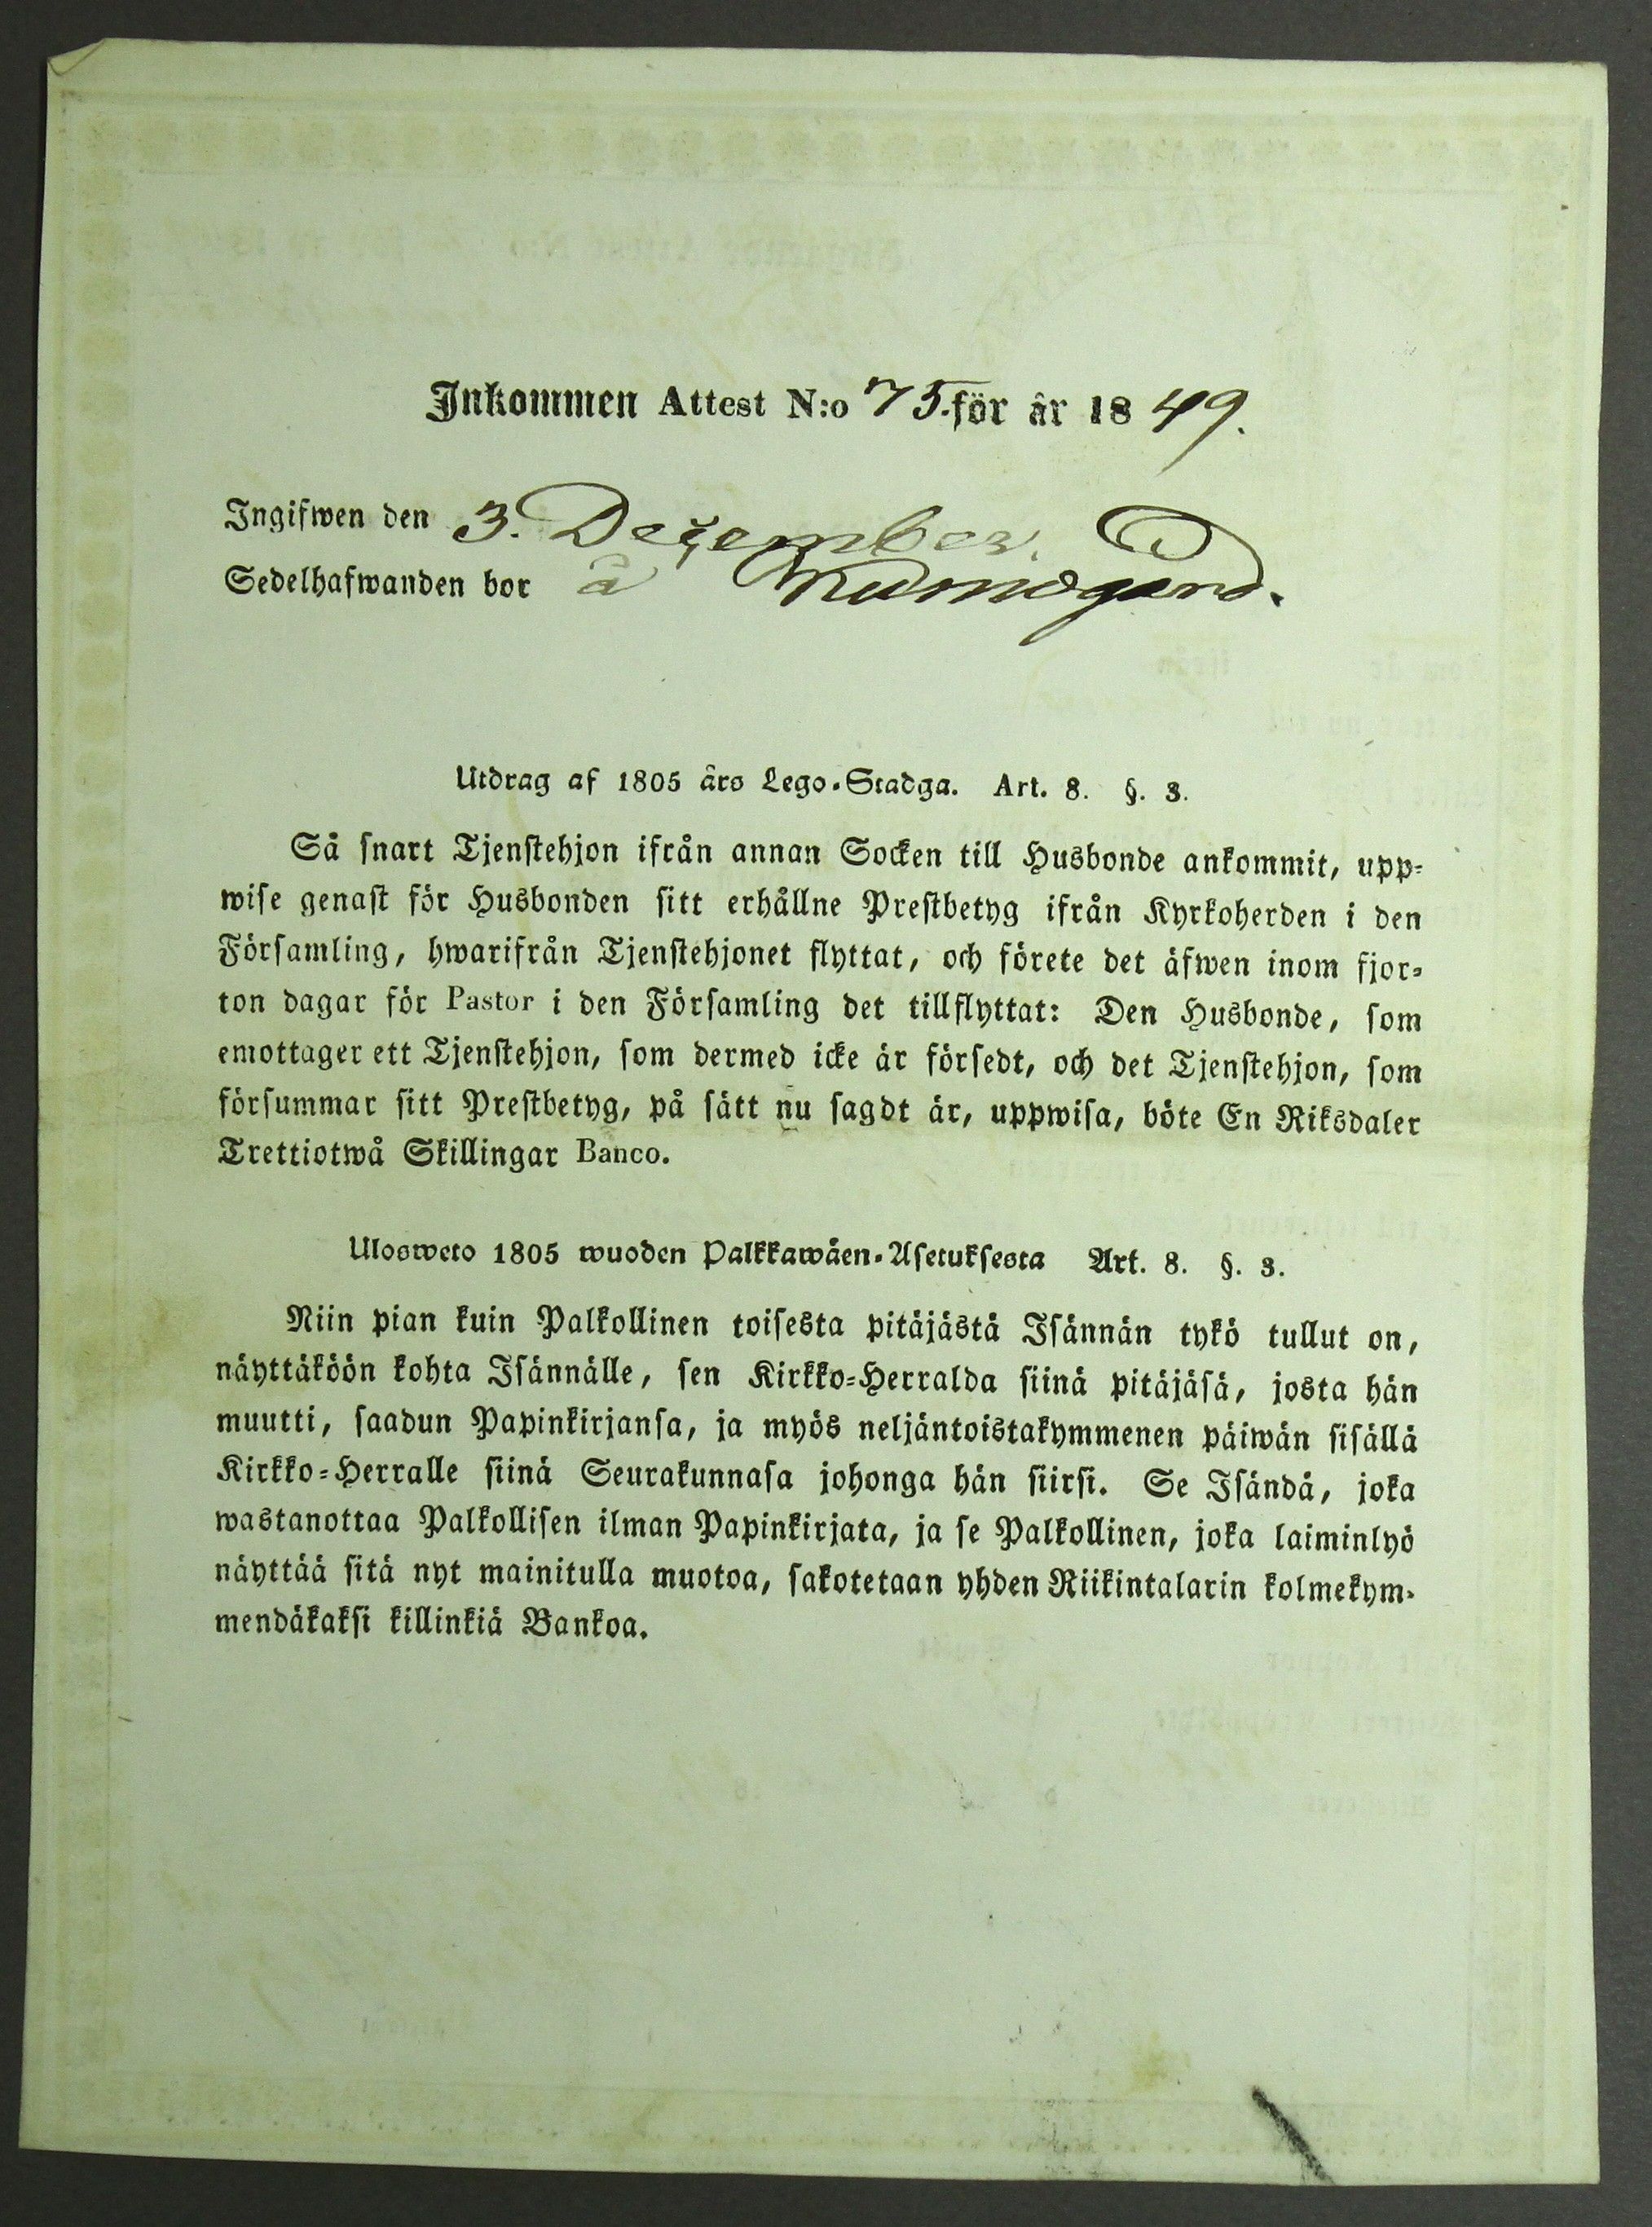 Inkommen Attest N:o 75. för år 1849.
Ingifwen den 3. Dezember.
Sedelhafwanden bor å
Utdrag af 1805 års Lego-Stadga. Art. 8. §. 3.
Så snart Tjenstehjon ifrån annan Socken till Husbonde ankommit, upp-
wise genast för Husbonden sitt erhållne Prestbetyg ifrån Kyrkoherden i den
Församling, hwarifrån Tjenstehjonet flyttat, och förete det äfwen inom fjor-
ton dagar för Pastor i den Församling det tillflyttat: Den Husbonde, som
emottager ett Tjenstehjon, som dermed icke är försedt, och det Tjenstehjon, som
försummar sitt Prestbetyg, på sätt nu sagdt är, uppwisa, böte En Riksdaler
Trettiotwå Skillingar Banco.
Ulosweto 1805 wuoden Palkkawäen-Asetuksesta Art. 8. §. 3.
Niin pian kuin Palkollinen toisesta pitäjästä Isännän tykö tullut on,
näyttäköön kohta Isännälle, sen Kirkko-Herralda siinä pitäjäsä, josta hän
muutti, saadun Papinkirjansa, ja myös neljäntoistakymmenen päiwän sisällä
Kirkko-Herralle siinä Seurakunnasa johonga hän siirsi. Se Isändä, joka
wastanottaa Palkollisen ilman Papinkirjata, ja se Palkollinen, joka laiminlyö
näyttää sitä nyt mainitulla muotoa, sakotetaan yhden Riikintalarin kolmekym-
mendäkaksi killinkiä Bankoa.